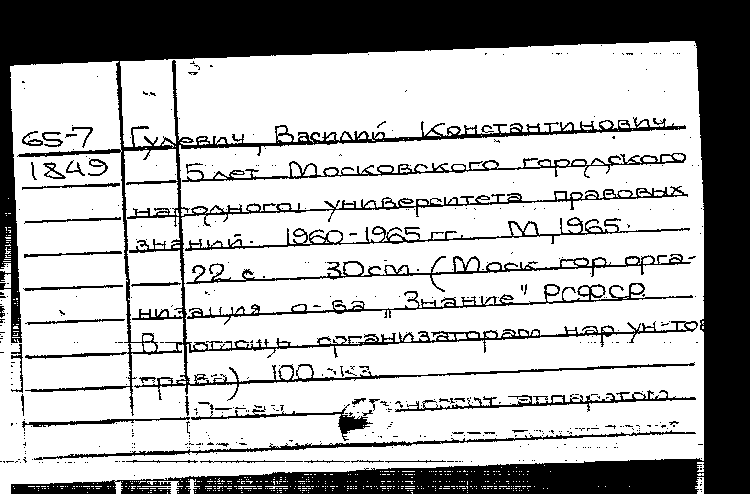 65-7 Гулевич, Василий Константинович.
1849 5 лет Московского городского
народного университета правовых
знаний. 1960-1965 гг. М., 1965.
22 с. 30 см. (Моск. гор. орга-
низация о-ва „Знание" РСФСР
В помощь организаторам нар. ун-тов
права). 100 экз.
Отпеч. множит. аппаратом.